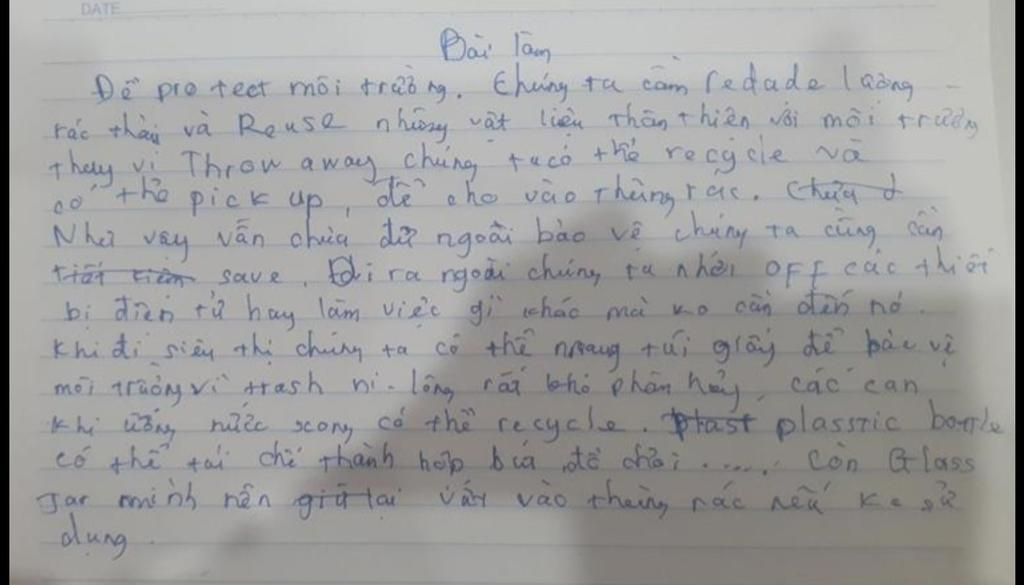 DATE
Bài làm
Để protect môi trường. Chúng ta cầm redade lường
rác thải và Reuse những vật liệu thân thiên với môi trường
thay vì Throw away chúng ta có thể recycle và
có thể pick up, để cho vào thùng rác. Chưa đ
Như vậy vẫn chưa đủ ngoài bảo vệ chúng ta cũng cần
tiết kiệm save. Đi ra ngoài chúng ta nhới off các thiết
bị điện tử hay làm việc gì khác mà ko cần đến nó.
Khi đi siêu thị chúng ta có thể mang túi giấy để bảo vệ
môi trường vì trash ni-lông rất khó phân hủy, các can
khi uống nước xcong có thể recycle. plast plasstic bottle
có thể tái chế thành hộp bút, đồ chơi ..... còn Glass
Jar mình nên giữ lại vất vào thùng rác nếu ko sử
dụng.